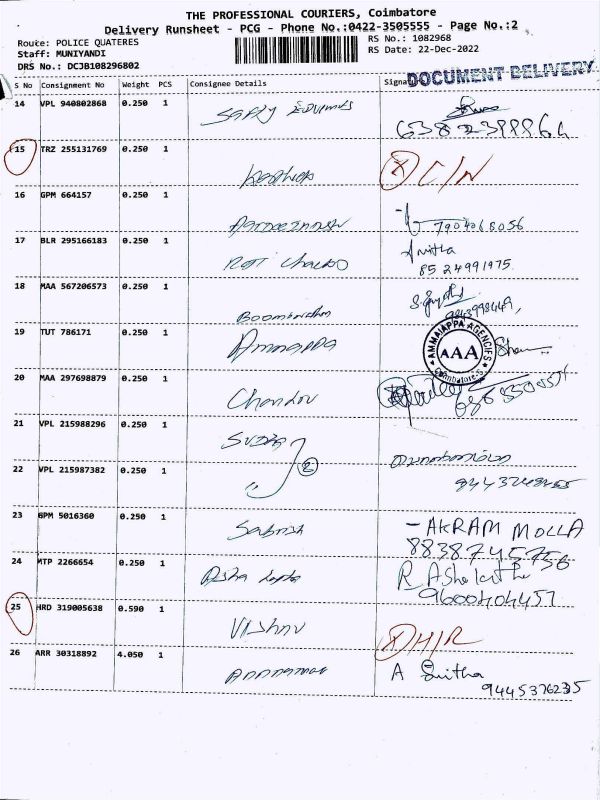 THE PROFESSIONAL COURIERS, Coimbatore
Delivery Runsheet - PCG - Phone No.:0422-3505555 - Page No.:2
Route: POLICE QUATERES
RS No.: 1082968
Staff: MUNIYANDI
RS Date: 22-Dec-2022
DRS No.: DCJB108296802
DOCUMENT DELIVERY
S No Consignment No Weight PCS Consignee Details Signat
14 VPL 940802868 0.250 1
15 TRZ 255131769 0.250 1
X C/N
16 GPM 664157 0.250 1
7904068056
17 BLR 295166183 0.250 1
Anitha
8524991975
18 MAA 567206573 0.250 1
19 TUT 786171 0.250 1
AMMAIAPPA AGENCIES
AAA
Coimbatore-5
20 MAA 297698879 0.250 1
Chandru
21 VPL 215988296 0.250 1
Sudha
2
22 VPL 215987382 0.250 1
23 GPM 5016360 0.250 1
Sabrish
- AKRAM MOLLA
8838745756
24 MTP 2266654 0.250 1
9600404457
25 HRD 319005638 0.590 1
Vishnu
X H/R
26 ARR 30318892 4.050 1
A Snitha
9445376235